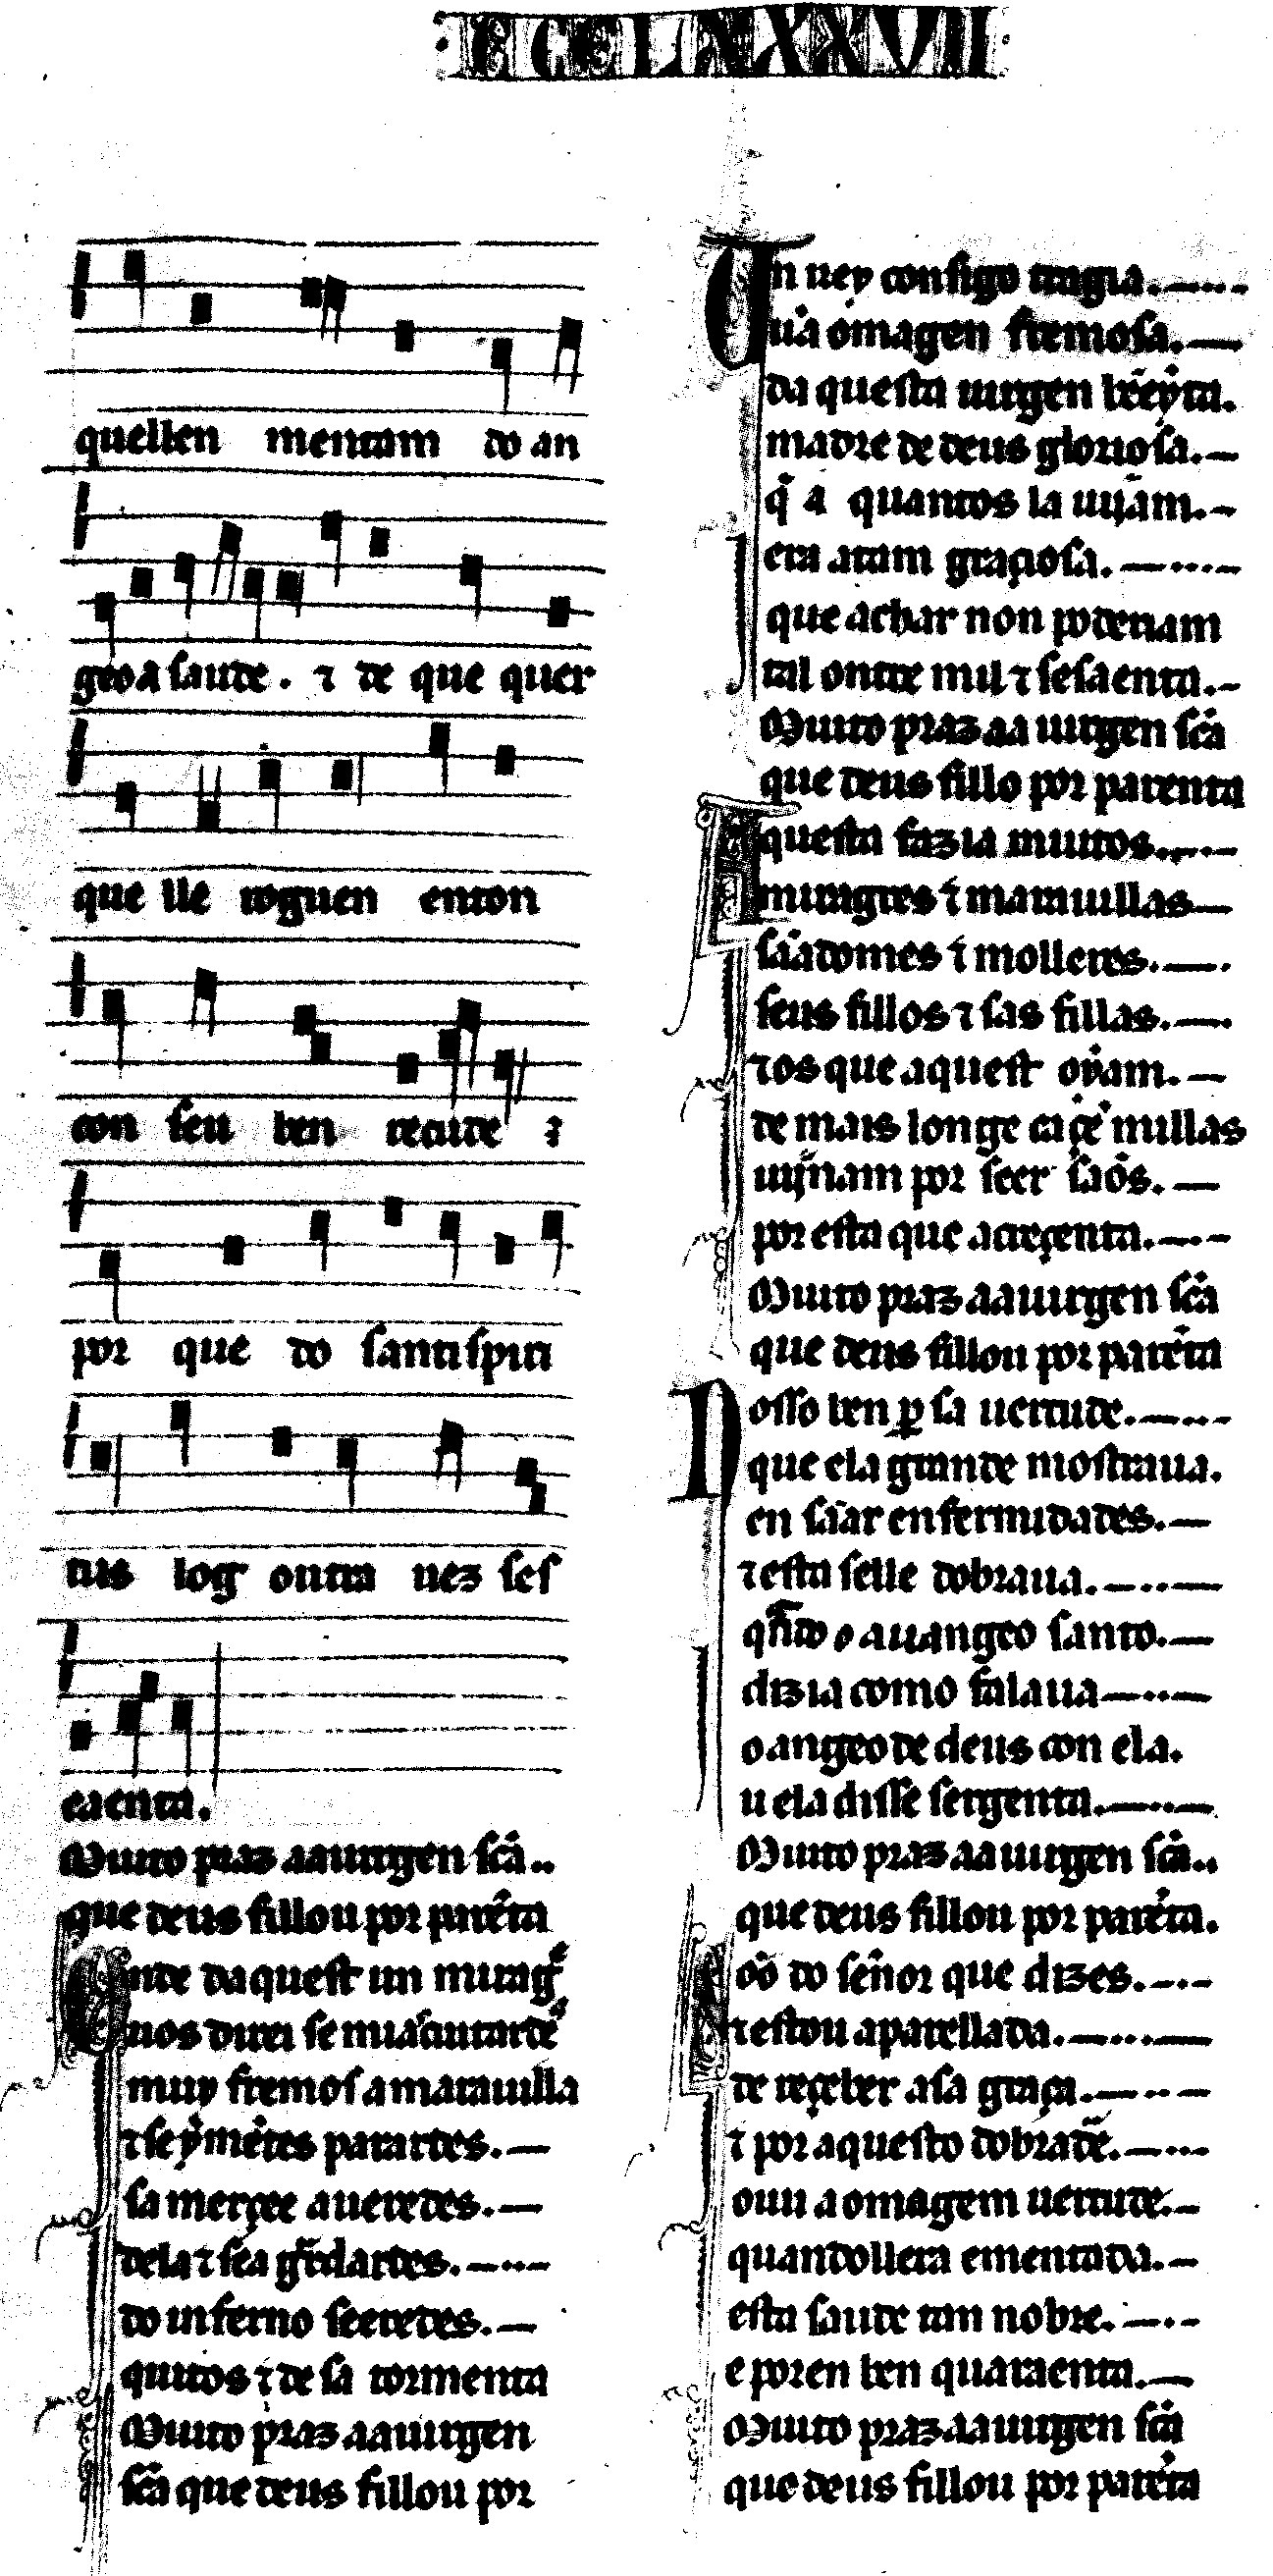 CCCLXXXVII
quellen mentam do an
geo a saude. ⁊ de que quer
que lle roguen enton
con seu ben recude :
por que do santi spiri
tus log outra uez ses
eaenta.
Muito praz aa uirgen scã..
que deus fillou por parẽta
Onde daquest un mirag̃
uos direi se mia ciutardẽ
muy fremos a marauilla
⁊ se ỹ mẽtes parardes.—
sa merçee aueredes.—
dela ⁊ sea g̃rdardes.—··—
do inferno seeredes.—
quitos ⁊ de sa tormenta
Muito praz aa uirgen
scã que deus fillou por
Un rey consigo tragia.—··-
ũa omagen fremosa.—
da questa uirgen bẽeyta.
madre de deus gloriosa.—
q̃ a quantos la uijam.—
era atam graçiosa.—···—
que achar non poderiam
tal ontre mil ⁊ sesaenta.—
Muito praz aa uirgen scã
que deus fillo por parenta
A questa fazia muitos.—··—
miragres ⁊ marauillas—
sãa domes ⁊ molleres.—·
seus fillos ⁊ sas fillas.—·
⁊ os que aquest oyam.—
de mais longe ca çẽ millas
uĳnnam por seer sãos.—
por esta que acreçenta.—·-
Muito praz aa uirgen scã
que deus fillou por parẽta
Nosso ben ꝑ sa uertude.—··-
que ela grande mostraua.
en sãar enfermidades.—
⁊ esta selle dobraua.—··—
q̃ndo o auangeo santo.—
dizia como falaua—··—
o angeo de deus con ela.
u ela disse sergenta.—··—
Muito praz aa uirgen scã..
que deus fillou por parẽta.
Sõo do señor que dizes.—·-
⁊ estou aparellada.—···—
de reçeber a sa graça.—··—
⁊ por aquesto dobradẽ.—··-
ouu a omagem uertude.—
quandollera ementada.—
esta saude tan nobre.—·-
e poren ben quaraenta.—
Muito praz aa uirgen scã
que deus fillou por parẽta